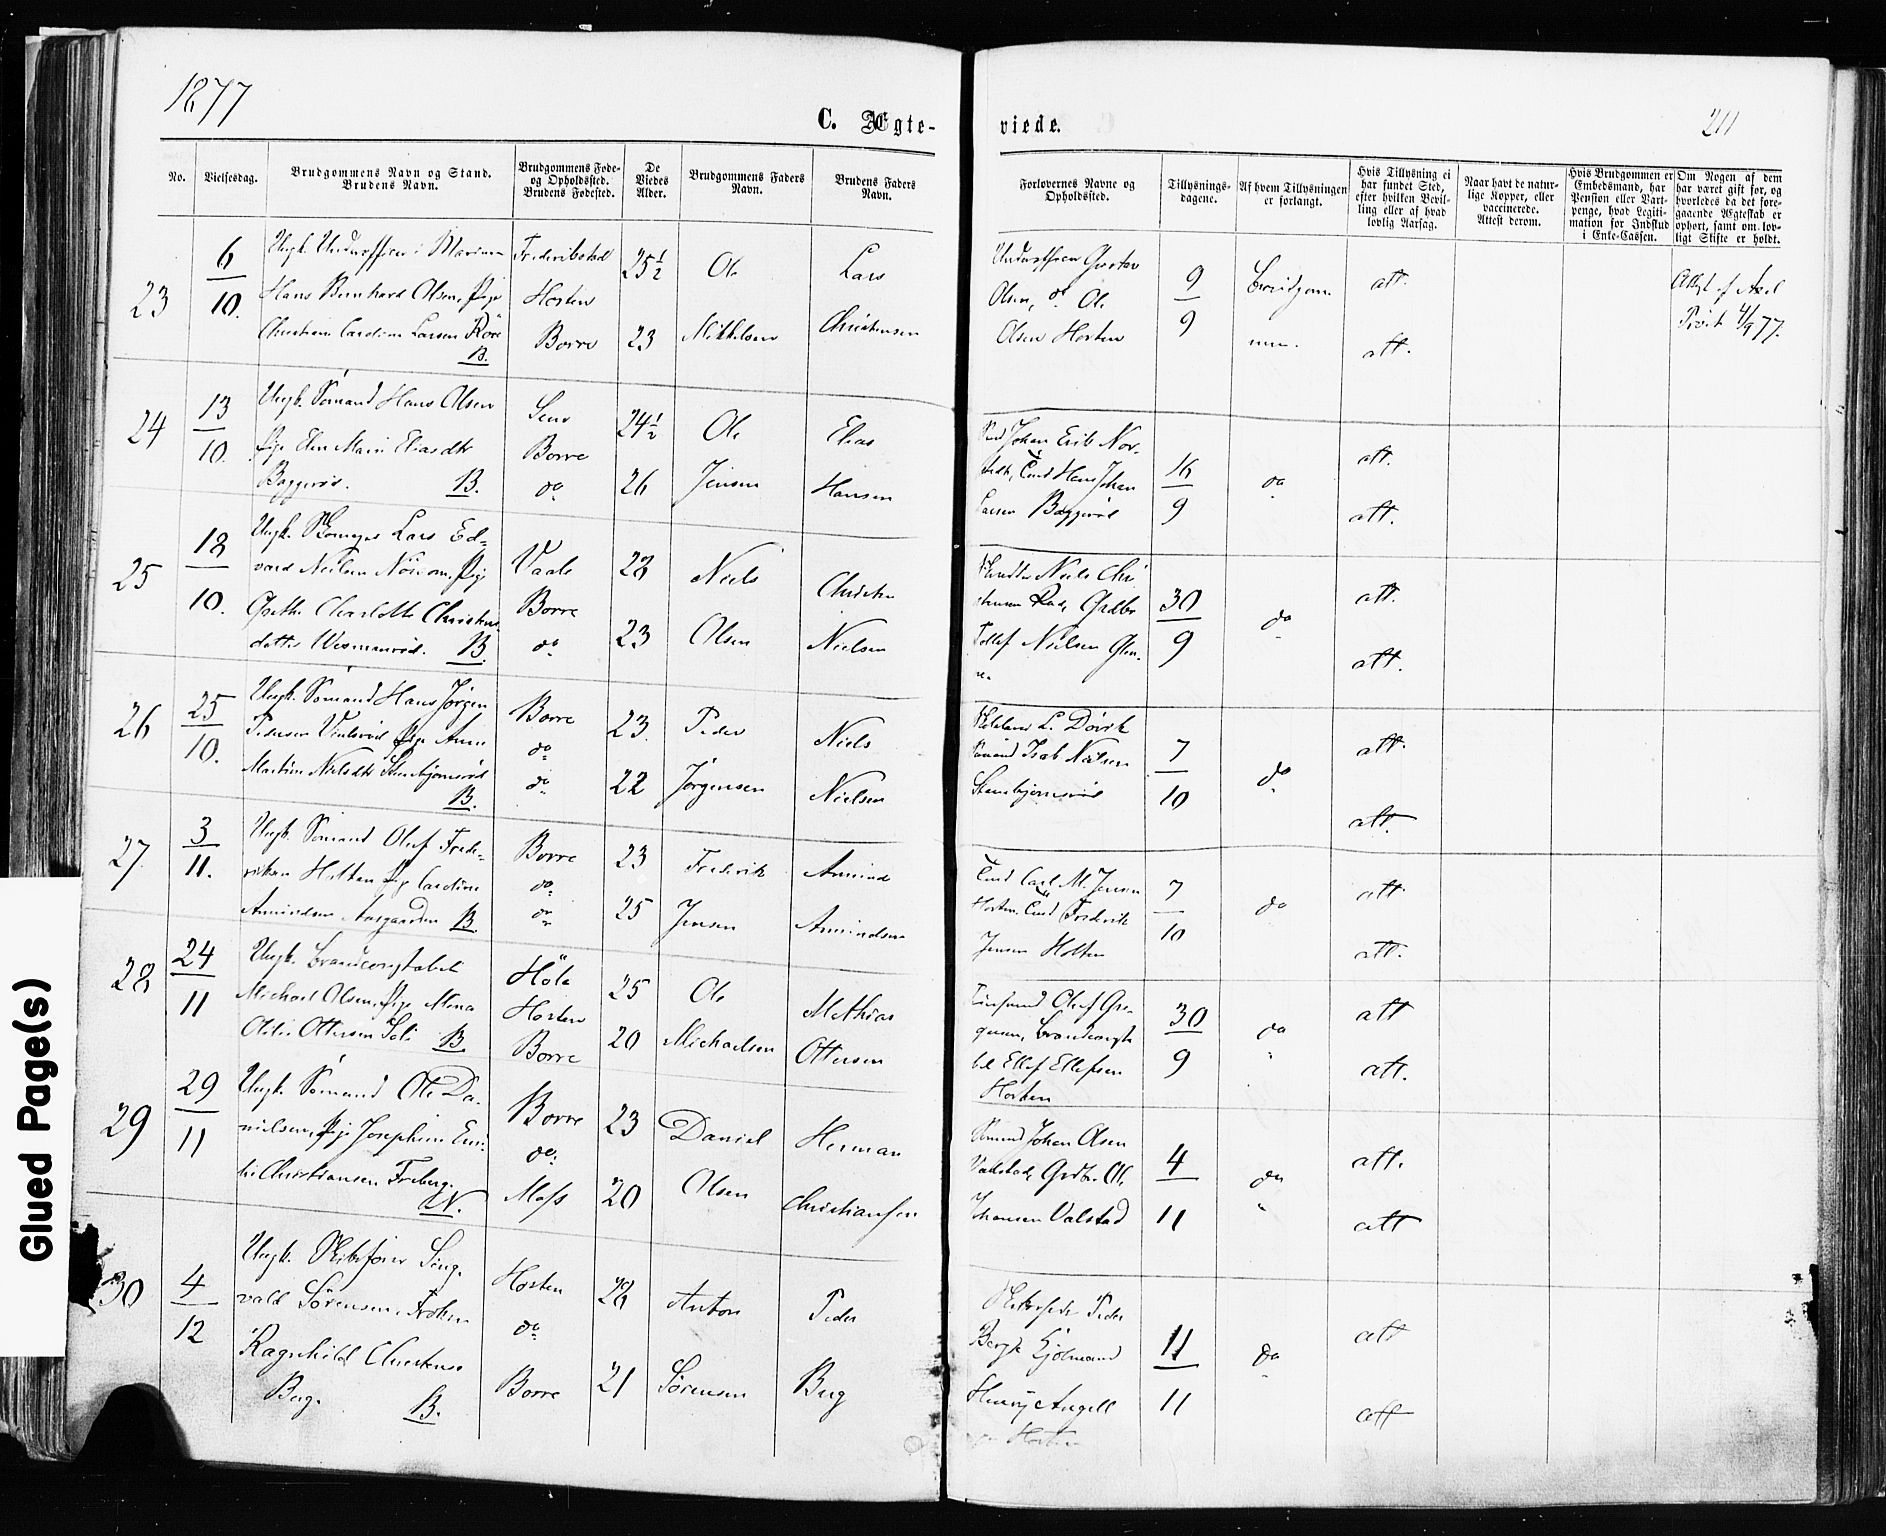 1877
C. Ægte-
No.
Vielsesdag.
Brudgommens Navn og Stand.
Brudens Navn.
Brudgommens Føde-
og Opholdssted.
Brudens Fødested.
De
Viedes
Alder.
Brudgommens Faders
Navn.
Brudens Faders
Navn.
23
6
10.
Ungk. Underofficer i Marinen
Hans Bernhard Olsen, Pige
Larsen
B.
Frederikstad
Horten
Borre
25½
23
Ole
Mikkelsen
Lars
Christensen
24
13
10.
Ungk. Sømand Hans Olsen
Pige Elen Marie Eliasdtr
B.
Sem
Borre
do
24½
26
Ole
Jensen
Elias
Hansen
25
18
10.
Ungk. Lars Ed-
vard Nielsen Pige
Grethe Charlotte Christens-
datter
B.
Vaale
Borre
do
28
23
Niels
Olsen
Christen
Nielsen
26
25
10.
Ungk. Sømand Hans Jørgen
Pedersen Pige Anne
Nielsdtr
B.
Borre
do
do
23.
22
Peder
Jørgensen
Niels
Nielsen
27.
3
11.
Ungk. Sømand Oluf Frede-
riksen Holtan Pige Caroline
Amundsen Aasgaarden B.
Borre
do
do
23
25
Frederik
Jensen
Amund
Amundsen
28
24
11
Ungk. Brandconstabel
Michael Olsen, Pige
Ottersen B
Horten
Borre
25
20
Ole
Michaelsen
Mathias
Ottersen
29
29
11
Ungk. Sømand Ole Da-
nielsen, Pige Josephine Emi-
lie Christiansen Freberg.
N.
Borre
do
Moss
23
20
Daniel
Olsen
Herman
Christiansen
30
4
12
Ungk. Skibsfører
vald Sörensen, Frøken
Ragnhild
Berg.
B.
Horten
do
Borre
28
21
Anton
Sörensen
Peder
Berg
viede.
211
Forlovernes Navne og
Opholdssted.
Tillysnings-
dagene.
Af hvem Tillysningen
er forlangt.
Hvis Tillysning ei
har fundet Sted,
efter hvilken Bevil-
ling eller af hvad
lovlig Aarsag.
Naar havt de natur-
lige Kopper, eller
vaccinerede.
Attest derom.
Hvis Brudgommen er
Embedsmand, har
Pension eller Vart-
penge, hvad Legiti-
mation for Indskud
i Enke-Cassen.
Om Nogen af dem
har været gift før, og
hvorledes da det fore-
gaaende Ægteskab er
ophørt, samt om lov-
ligt Skifte er holdt.
Underofficer Gustav
Olsen, do Ole
Olsen Horten
9
9
Brudgom
men.
att.
att.
4/9 77.
Johan Erik Nor-
Hans Johan
Larsen
16
9
do
att.
att.
Niels Chri
stensen
Nielsen
30
9
do
att.
att.
L. Dørik
Sømand Isak Nielsen
7
10
do
att.
att.
Carl M. Jensen
Horten. Frederik
Jensen Holtan
7
10
do
att
att.
Oluf Gre-
gersen, Brandconsta
bel Ellef Ellefsen
Horten
30
9
do
att
att.
Sømand Johan Olsen
Valstad, Grdbr. Ole
Johansen Valstad
4
11
do
att.
att
Peder
Bergh
Henry Angell
Horten
11
11
do
att
att
Glued Page(s)